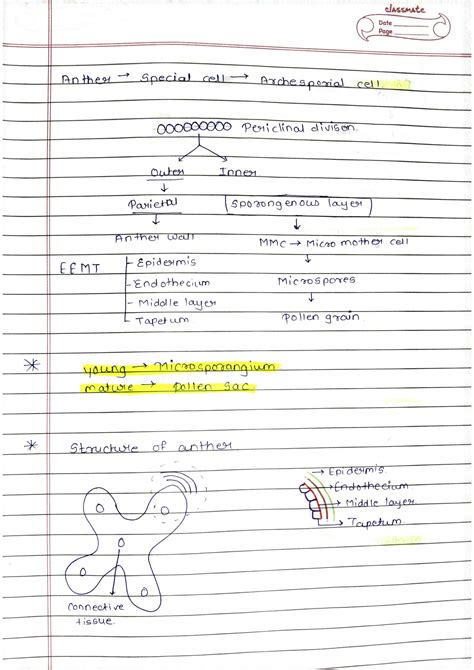 classmate
Date
Page
Anther → Special cell → Archesporial cell
OOOOOOOOO Periclinal divison.
Outer Inner
Parietal Sporongenous layer
Anther wall MMC → Micro mother cell
EEMT
- Epidermis
- Endothecium
- Middle layer
- Tapetum
Microspores
Pollen grain
* young → Microsporangium
mature → pollen sac
* Structure of anther
→ Epidermis
→ Endothecium
→ Middle layer
→ Tapetum
connective
tissue.